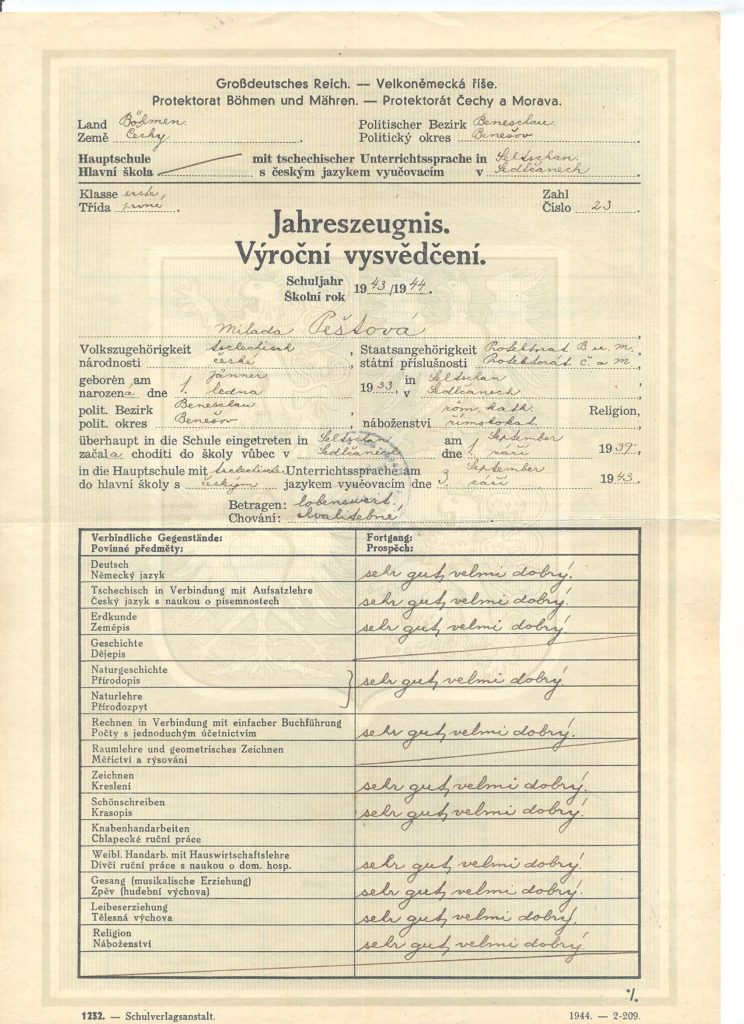 Großdeutsches Reich. — Velkoněmecká říše.
Protektorat Böhmen und Mähren. — Protektorát Čechy a Morava.
Land Böhmen. Politischer Bezirk Beneschau.
Země Čechy Politický okres Benešov
Hauptschule mit tschechischer Unterrichtssprache in Seltschan.
Hlavní škola s českým jazykem vyučovacím v Sedlčanech
Klasse erste, Zahl
Třída první. Číslo 23
Jahreszeugnis.
Výroční vysvědčení.
Schuljahr
Školní rok 1943/1944.
Milada Peštová
Volkszugehörigkeit tschechisch, Staatsangehörigkeit Protektorat B. u. M.
národnosti české, státní příslušnosti Protektorát Č. a M.
geboren am 1. Jänner 1933, in Seltschan
narozená dne 1. ledna v Sedlčanech
polit. Bezirk Beneschau röm. kath. Religion,
polit. okres Benešov náboženství římskokat.
überhaupt in die Schule eingetreten in Seltschan am 1. September 1939,
začala choditi do školy vůbec v Sedlčanech dne 1. září
in die Hauptschule mit tschechischer Unterrichtssprache am 3. September 1943.
do hlavní školy s českým jazykem vyučovacím dne 3. září
Betragen: lobenswert.
Chování: chvalitebné.
Verbindliche Gegenstände: Fortgang:
Povinné předměty: Prospěch:
Deutsch
Německý jazyk sehr gut, velmi dobrý.
Tschechisch in Verbindung mit Aufsatzlehre
Český jazyk s naukou o písemnostech sehr gut, velmi dobrý.
Erdkunde
Zeměpis sehr gut, velmi dobrý.
Geschichte
Dějepis
Naturgeschichte
Přírodopis sehr gut, velmi dobrý
Naturlehre
Přírodozpyt
Rechnen in Verbindung mit einfacher Buchführung
Počty s jednoduchým účetnictvím sehr gut, velmi dobrý.
Raumlehre und geometrisches Zeichnen
Měřictví a rýsování
Zeichnen
Kreslení sehr gut, velmi dobrý.
Schönschreiben
Krasopis sehr gut, velmi dobrý.
Knabenhandarbeiten
Chlapecké ruční práce
Weibl. Handarb. mit Hauswirtschaftslehre
Dívčí ruční práce s naukou o dom. hosp. sehr gut, velmi dobrý.
Gesang (musikalische Erziehung)
Zpěv (hudební výchova) sehr gut, velmi dobrý.
Leibeserziehung
Tělesná výchova sehr gut, velmi dobrý.
Religion
Náboženství sehr gut, velmi dobrý.
·/.
1232. — Schulverlagsanstalt. 1944. — 2-209.